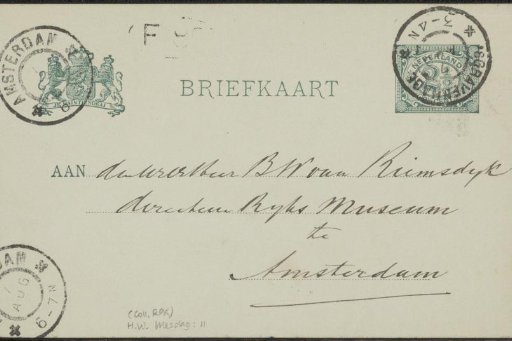 AMSTERDAM
BRIEFKAART
3-4 N
'S GRAVENHAGE
NEDERLAND
AAN den WelEdHeer B W van Riemsdyk
directeur Ryks Museum
te
Amsterdam
DAM
AUG
6-7 N
(Coll. RPK)
H.W. Mesdag: 11